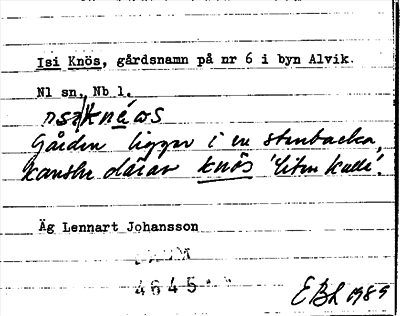 Isi Knös, gårdsnamn på nr 6 i byn Alvik.
Nl sn, Nb l.
Gården ligger i en stenbacka,
kanske därav knös 'liten kulle'.
Äg Lennart Johansson
4645
EBL 1989